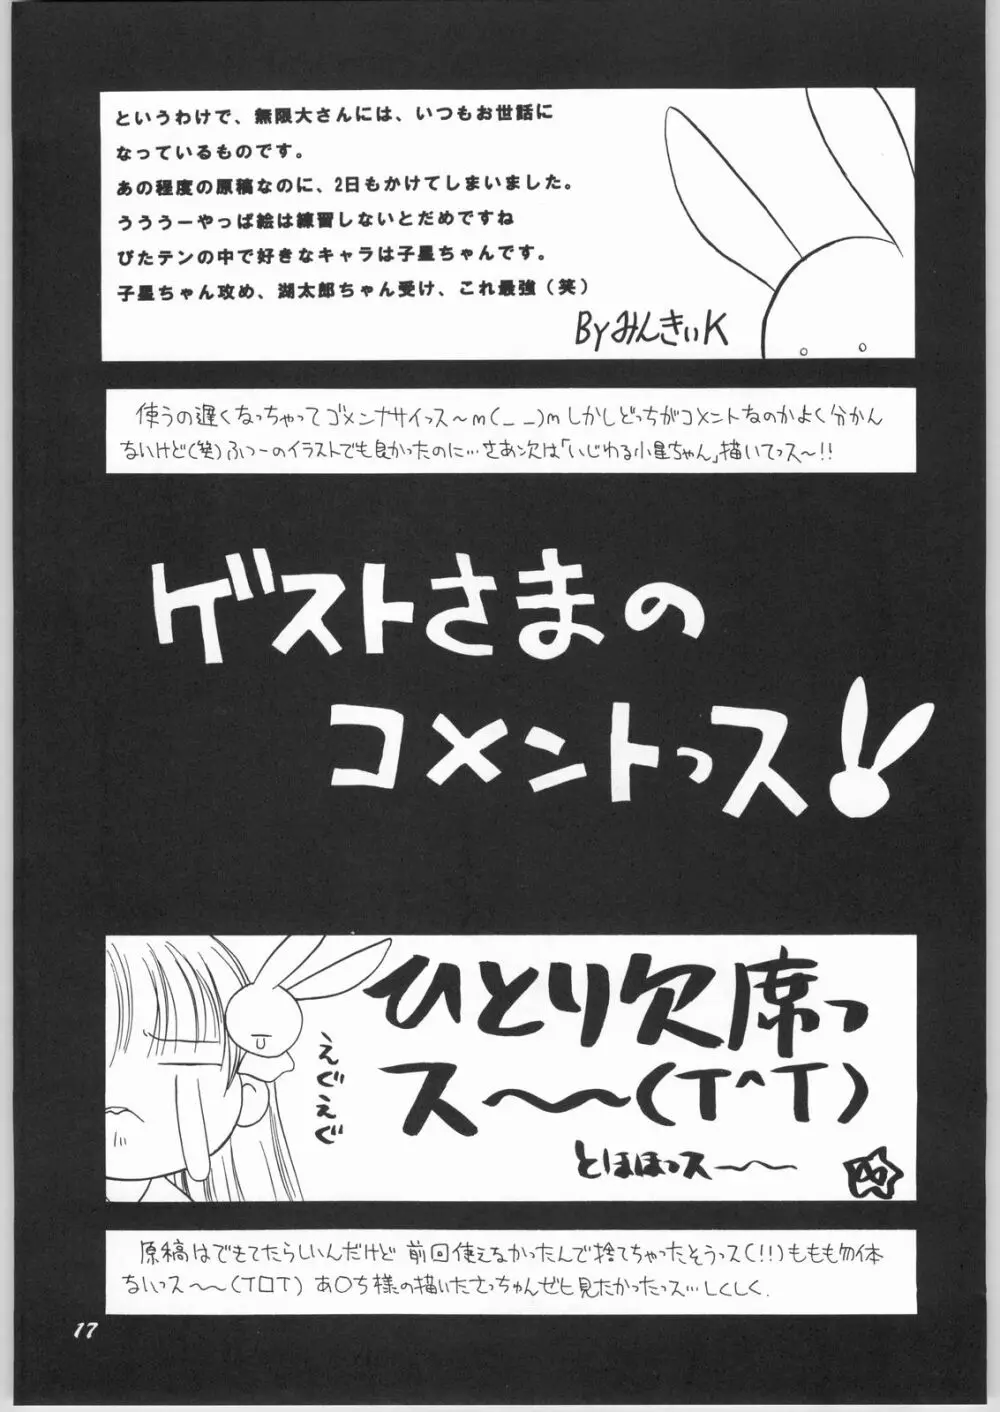 というわけで、無限大さんには、いつもお世話に
なっているものです。
あの程度の原稿なのに、2日もかけてしまいました。
うううーやっぱ絵は練習しないとだめですね
ぴたテンの中で好きなキャラは子星ちゃんです。
子星ちゃん攻め、湖太郎ちゃん受け、これ最強（笑）
By みんきぃK
使うの遅くなっちゃってゴメンナサイっス〜m(_ _)m しかしどっちがコメントなのかよく分かん
ないけど(笑)ふつーのイラストでも良かったのに…さあ次は「いじわる小星ちゃん」描いてっス〜!!
ゲストさまの
コメントっス!!
ひとり欠席っ
ス〜〜(T^T)
えぐえぐ
とほほっス〜〜
原稿はできてたらしいんだけど 前回使えなかったんで捨てちゃったそうっス(!!)ももも勿体
ないっス〜〜(T□T) あ○ち様の描いたさっちゃんぜヒ見たかったっス…しくしく.
17